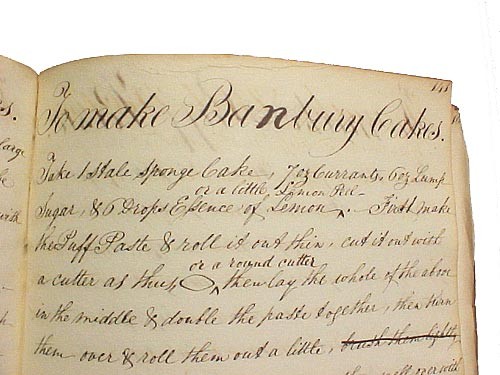 141
To make Banbury Cakes.
Take 1 Stale Sponge Cake, 7oz Currants, 6oz Lump
or a little Lemon Peel
Sugar, & 6 Drops Essence of Lemon ‸. First make
the Puff Paste & roll it out thin, cut it out with
or a round cutter
a cutter as thus ‸ then lay the whole of the above
in the middle & double the paste together, then turn
them over & roll them out a little, brush them lightly
roll over with
s.
large
with